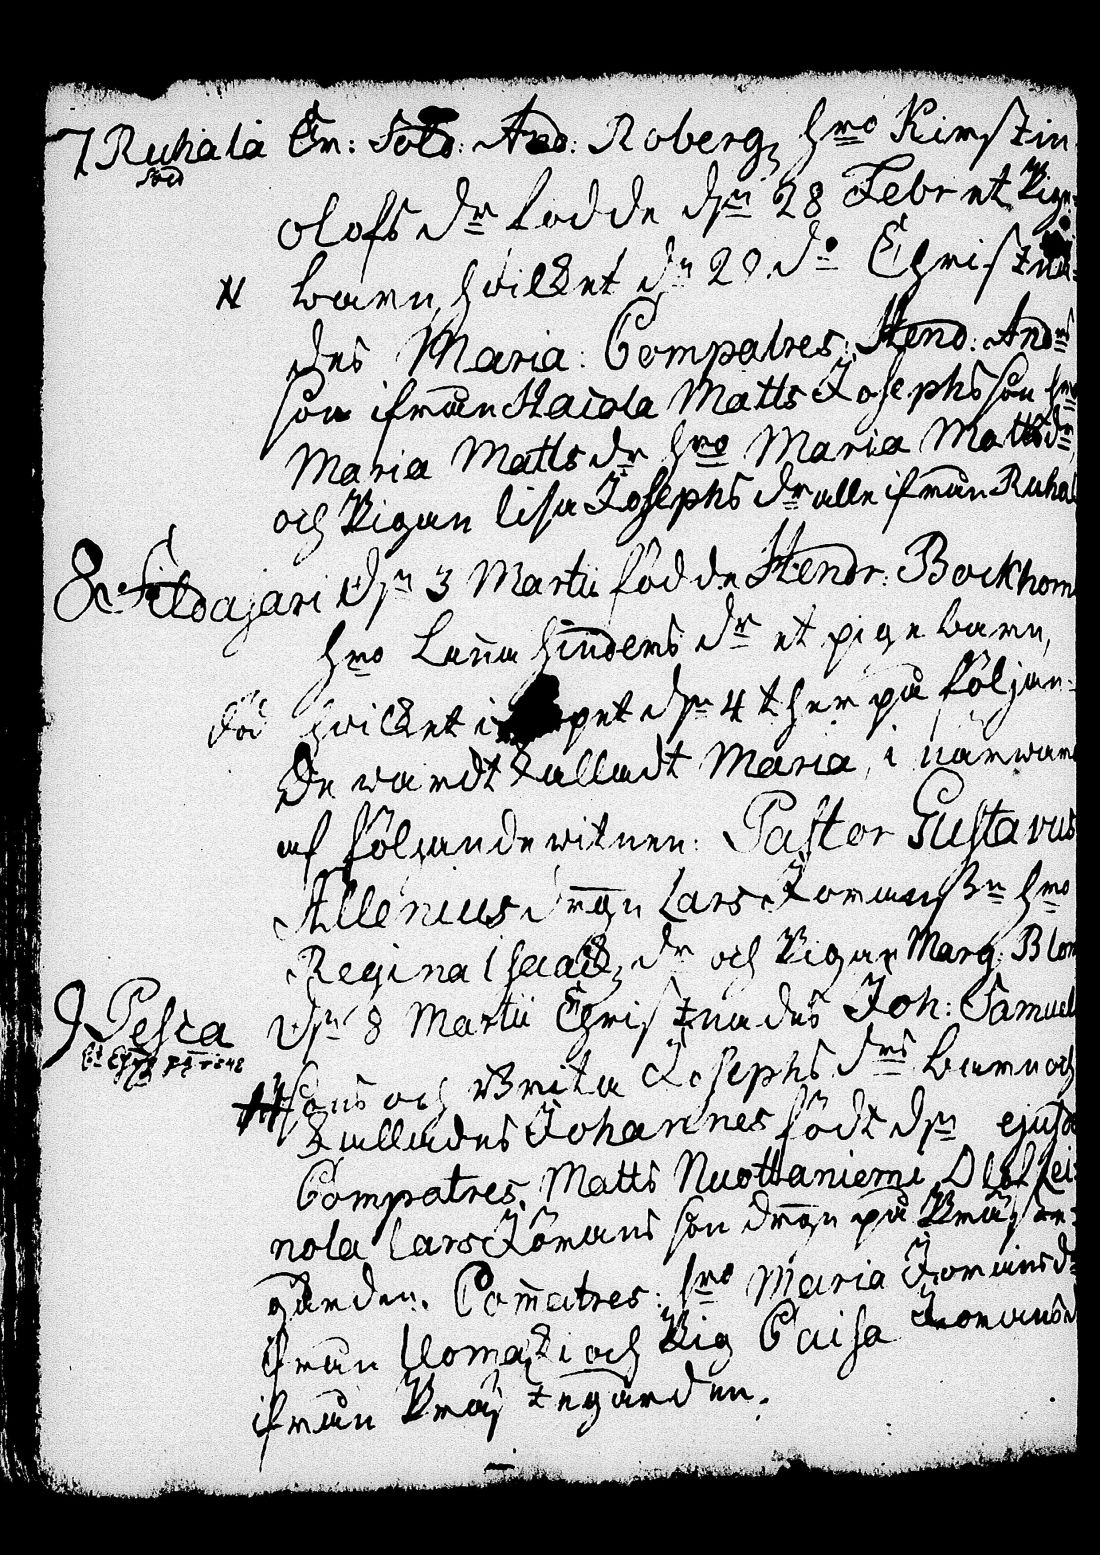 7 Ruhala Gr: Sold: And: Roberg, hro Kirstin
Sold
Olofs dr fodde dn 28 Febr et Pige
barn, hvilket dn 29 do Christna-
des Maria: Compatres: Hend: Anders
son ifrån Hacala Matts Josephsson hro
Maria Matts dr hro Maria Matts dr
och Pigan lisa Josephs dr alle ifrån Ruhal
8 Sildajari dn 3 Martii födde Hendr: Bockhom
hro Lena Hinders dr et pige barn,
död hvilket i dopet dn 4 ther på följan-
de wardt kalladt Maria, i närwaro
af följande witnen: Pastor Gustavus
Allenius drgn Lars Jöransßn hro
Regina Isaacs dr och Pigan Marg: Blom
9 Pesca dn 8 Martii Christnades Joh: Samuel
Sons och Brita Josephs drs barn och
kallades Johannes födt dn ejusd
Compatres. Matts Nuottaniemi, Olof Lei-
nola Lars Jörans son drgn på Präste-
gården. Comatres: hro Maria Jöransdr
från Uomaki och Pig Caisa Jöransd
ifrån Prästegården.